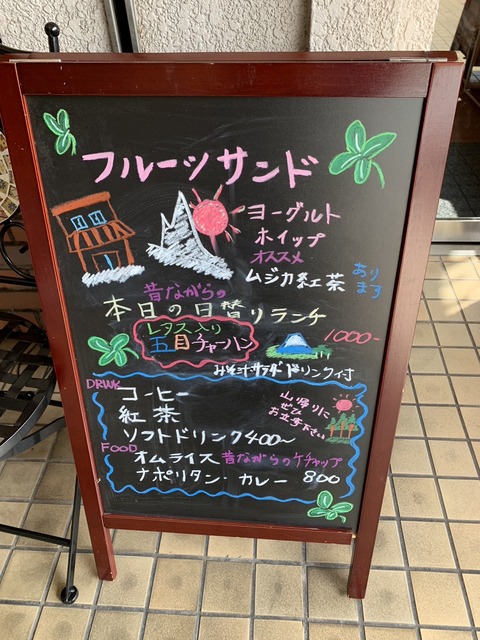 フルーツサンド
ヨーグルト
ホイップ
オススメ
ムジカ紅茶 あり
ます
昔ながらの
本日の日替りランチ
レタス入り
五目チャーハン
1000-
みそ汁サラダドリンク付
DRINK
コーヒー
紅茶
ソフトドリンク400〜
山帰りに
ぜひ
お立寄下さい
FOOD
オムライス 昔ながらのケチャップ
ナポリタン・カレー 800